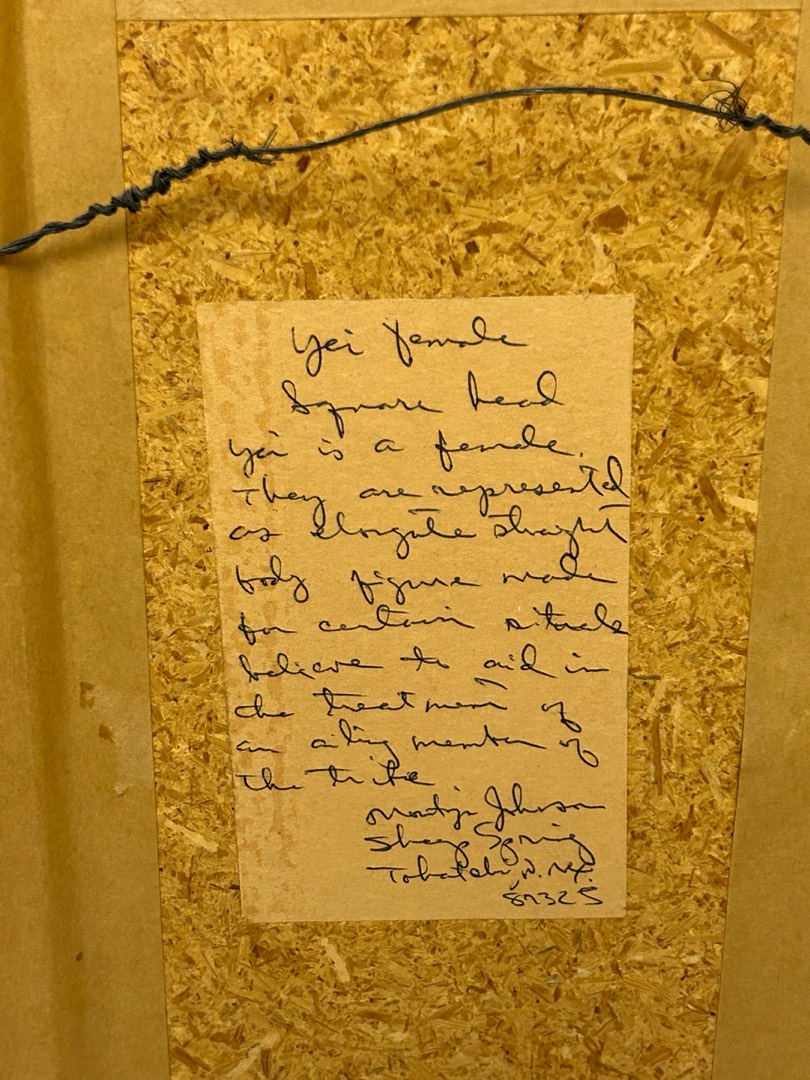 Yei female
Square head
Yei is a female.
They are represented
as elongate straight
body figure made
for certain rituals
believe to aid in
the treatment of
an ailing member of
the tribe
Johnson
Sheep Spring
Tohatchi, N. Mx.
87325